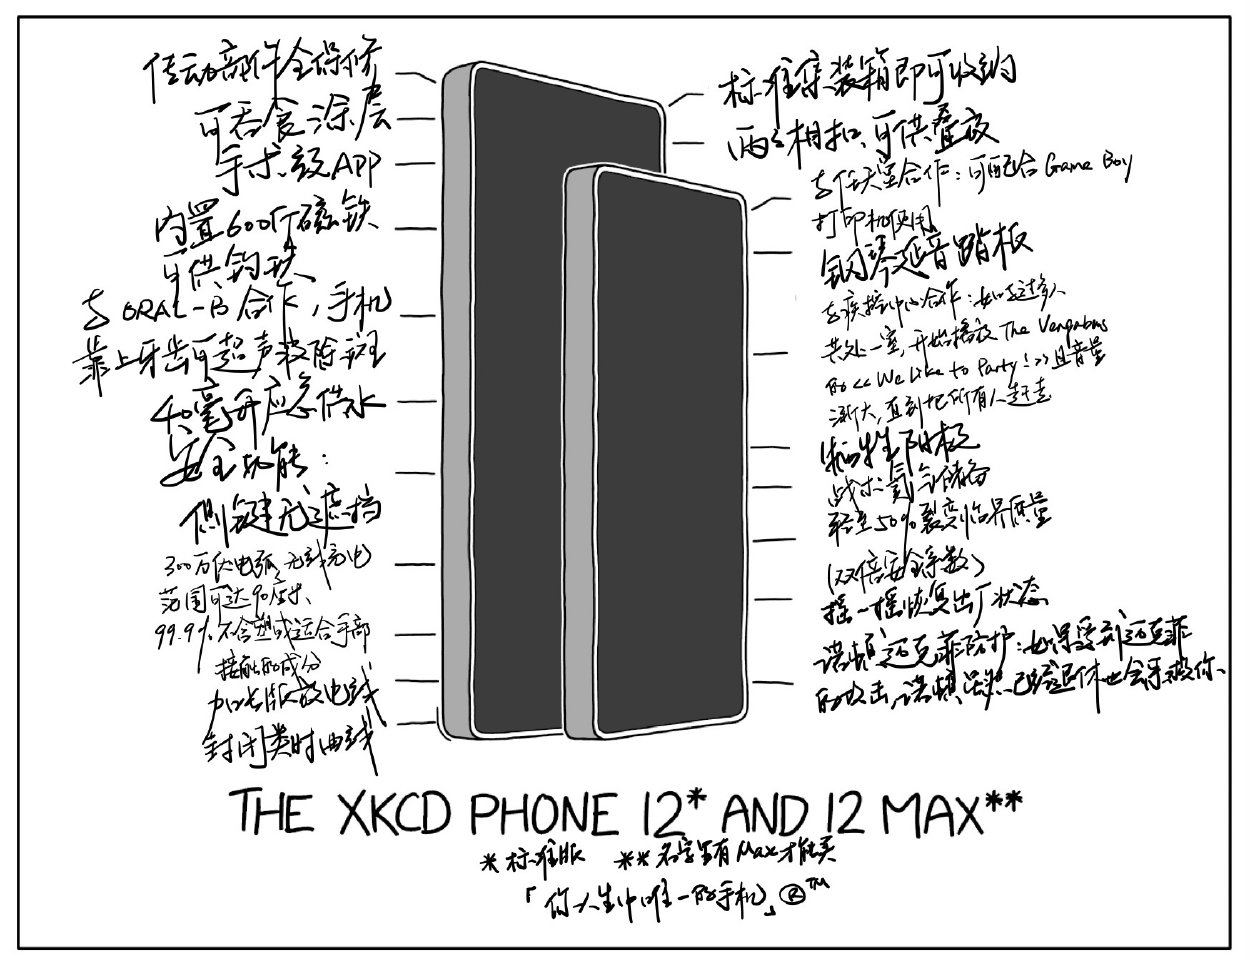 传动部件全保修
可吞食涂层
手术级APP
内置600斤磁铁
可供钓铁
与ORAL-B合作，手机
靠上牙齿可超声波除斑
40毫升应急供水
安全功能：
侧键无遮挡
300万伏电弧,无线充电
范围可达90英尺
99.9%不含塑或适合手部
接触的成分
加长版放电线
封闭类时曲线
标准集装箱即可收纳
两个相扣,可供叠放
与任天堂合作：可配合Game Boy
打印机使用
钢琴延音踏板
与疾控中心合作：如有过多人
共处一室,开始播放The Vengabus
的<<We Like to Party!>>且音量
渐大,直到把所有人赶走
牺牲阳极
战术氦气储备
轻至50%裂变临界质量
(双倍安全系数)
摇一摇恢复出厂状态
诺顿迈克菲防护：如果受到迈克菲
的攻击,诺顿虽然已经退休也会来救你.
THE XKCD PHONE 12* AND 12 MAX**
*标准版 **名字里有Max才能买
「你人生中唯一的手机」®™